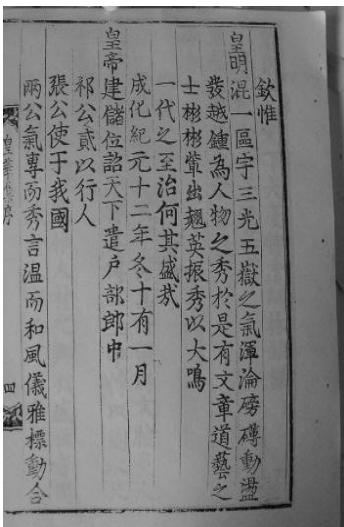 欽惟
皇明混一區宇三光五嶽之氣渾淪磅礴動盪
發越鍾為人物之秀於是有文章道藝之
士彬彬輩出翹英振秀以大鳴
一代之至治何其盛哉
成化紀元十二年冬十有一月
皇帝建儲位詔天下遣戶部郎中
祁公貳以行人
張公使于我國
兩公氣專而秀言溫而和風儀雅標動合
皇華集序
四